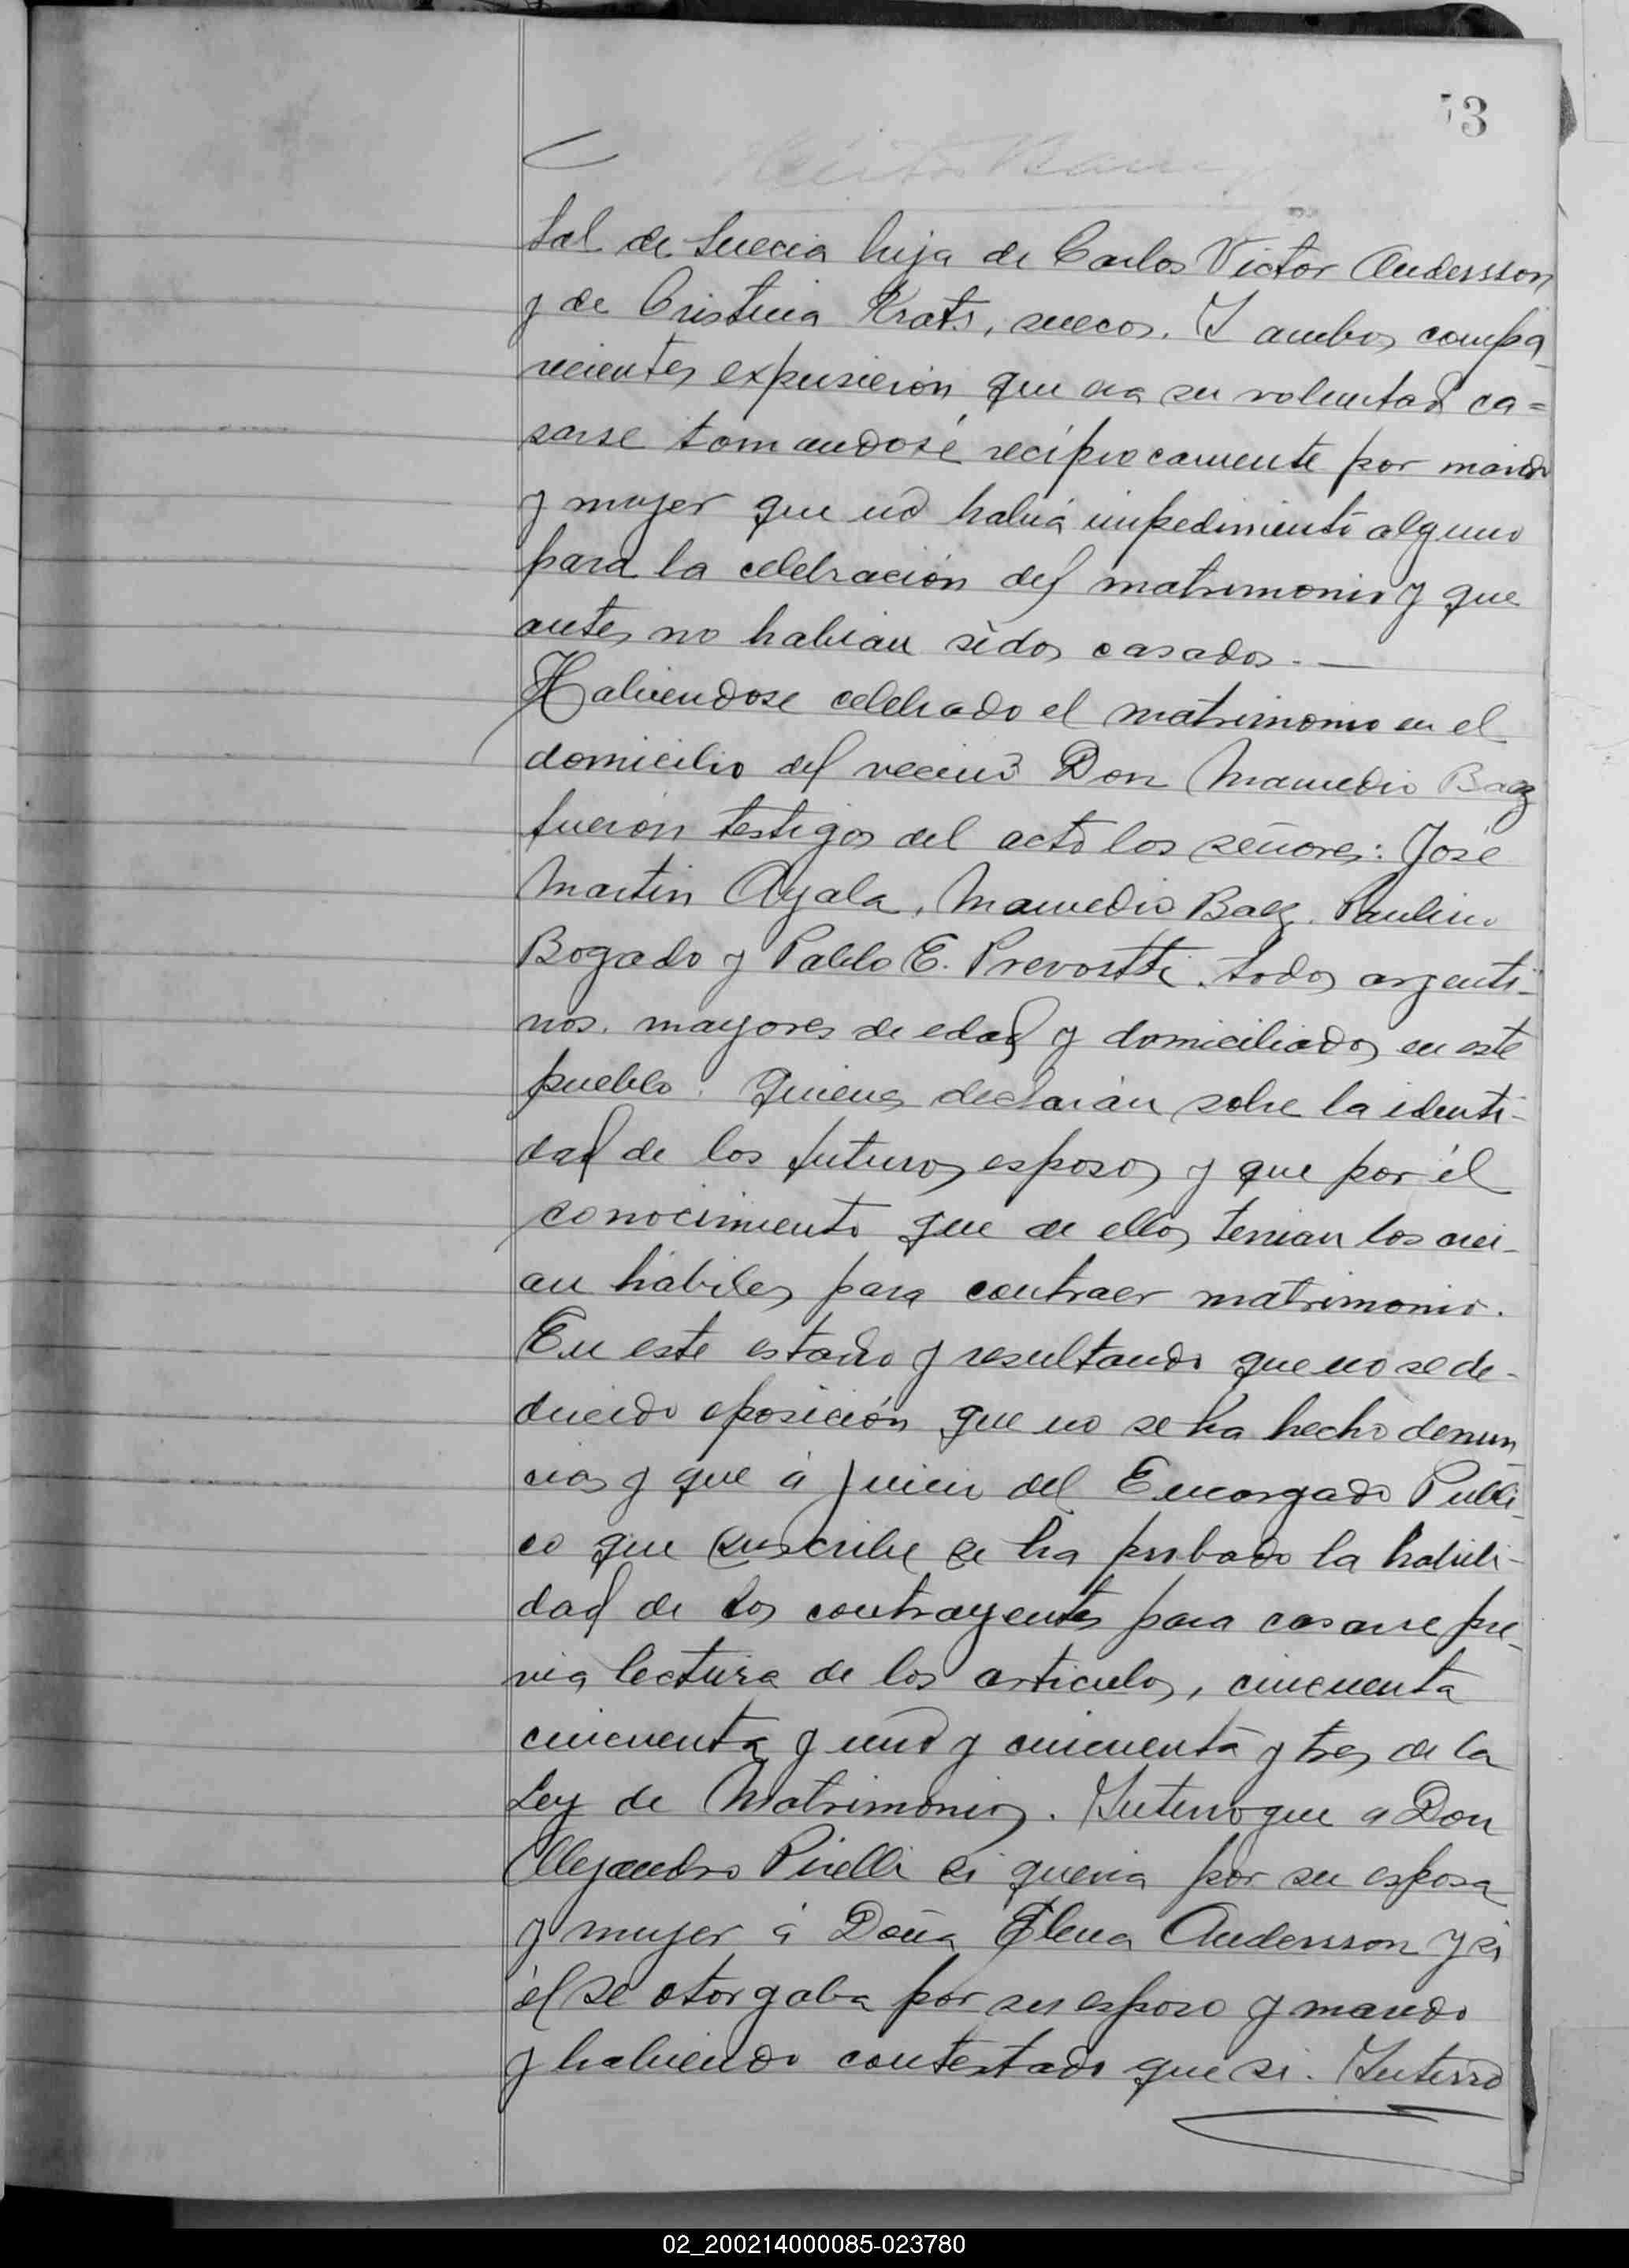 53
tal de Suecia hija de Carlos Victor Andersson
y de Cristina Krats, suecos. Y ambos compa_
recientes expusieron que era su voluntad ca=
sarse tomandosé recíprocamente por marido
y mujer que no habia impedimento alguno
para la celebración del matrimonio y que
antes no habian sidos casados.—
Habiendose celebrado el matrimonio en el
domicilio del vecino Don Mamedio Baez
fueron testigos del acto los señores: José
Martin Ayala, Mamedio Baez. Paulino
Bogado y Pablo E. Prevostti. todos argenti-
nos. mayores de edad y domiciliados en este
pueblo. Quienes declarán sobre la identi-
dad de los futuros esposos y que por él
conocimiento que de ellos tenian los crei-
an hábiles para contraer matrimonio.
En este estado y resultando que no se de-
ducido oposición que no se ha hecho denun_
cias y que á juicio del Encargado Públi_
co que suscribe se ha probado la habili-
dad de los contrayentes para casarse pre_
via lectura de los articulos, cincuenta
cincuenta y uno y cincuenta y tres de la
Ley de Matrimonios. Interrogue a Don
Allejandro Pirelli si queria por su esposa
y mujer á Doña Elena Andersson y si
él se otorgaba por su esposo y marido
y habiendo contestado que si. Interro
02_200214000085-023780